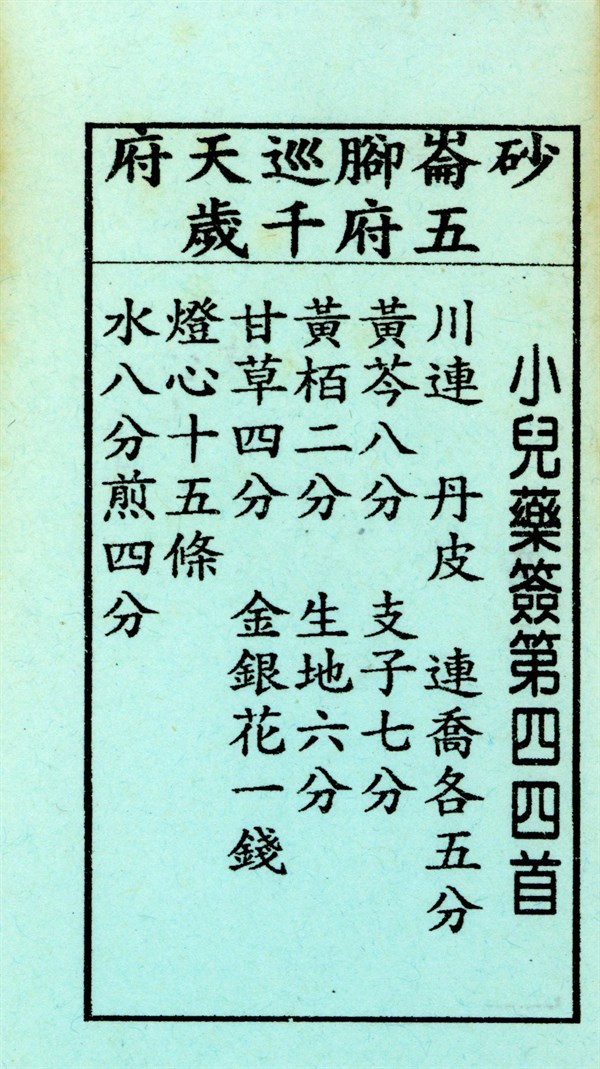 砂崙腳巡天府
五府千歲
小兒藥簽第四四首
川連 丹皮 連喬各五分
黃芩八分 支子七分
黃栢二分 生地六分
甘草四分 金銀花一錢
燈心十五條
水八分煎四分